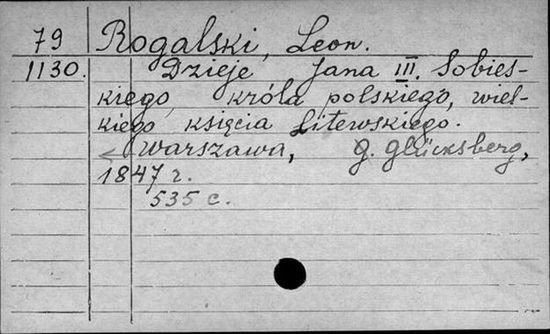 79 Rogalski, Leon.
1130. Dzieje Jana III. Sobies-
kiego, króla polskiego, wiel-
kiego księcia Litewskiego.
Warszawa, G. Glücksberg,
1847 r.
535 c.